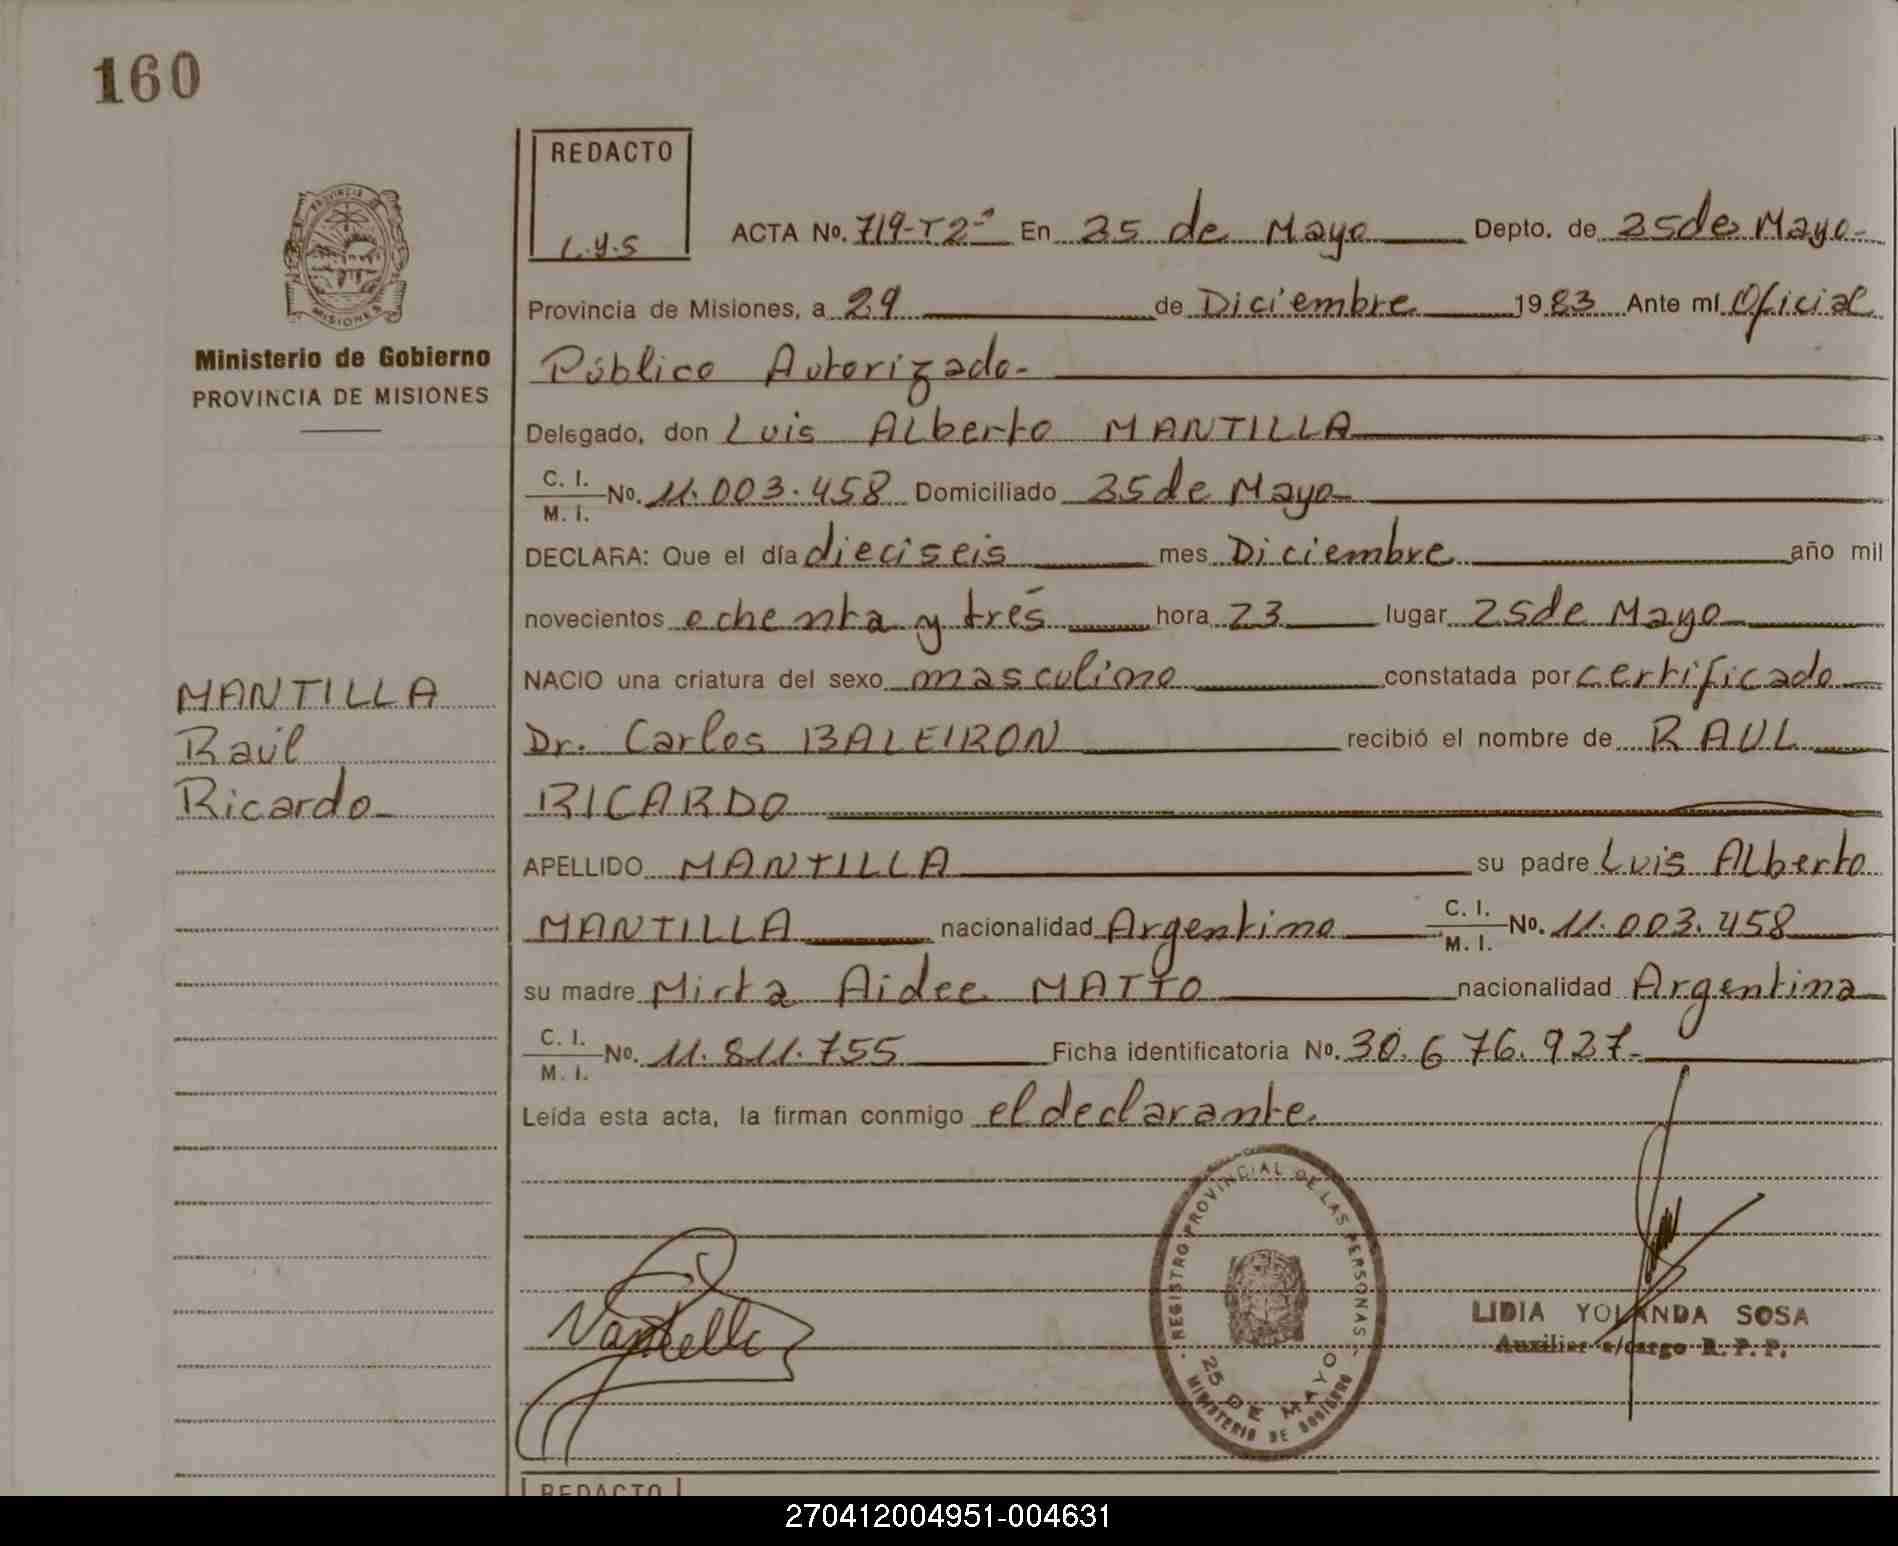 160
REDACTO
L.y.S
PROVINCIA DE
MISIONES
Ministerio de Gobierno
PROVINCIA DE MISIONES
ACTA No. 719-T2º En 25 de Mayo Depto. de 25 de Mayo-
Provincia de Misiones, a 29 de Diciembre 1983 Ante mí Oficial
Público Autorizado-
Delegado, don Luis Alberto MANTILLA
C. I. / M. I. No. 11.003.458 Domiciliado 25 de Mayo
DECLARA: Que el día dieciseis mes Diciembre año mil
novecientos ochenta y trés hora 23 lugar 25 de Mayo
NACIO una criatura del sexo masculino constatada por certificado
Dr. Carlos BALEIRON recibió el nombre de RAUL
RICARDO
APELLIDO MANTILLA su padre Luis Alberto
MANTILLA nacionalidad Argentino C. I. / M. I. No. 11.003.458
su madre Mirta Aidee MATTO nacionalidad Argentina
C. I. / M. I. No. 11.811.755 Ficha identificatoria No. 30.676.927-
Leída esta acta, la firman conmigo el declarante.
MANTILLA
Raúl
Ricardo
REGISTRO PROVINCIAL DE LAS PERSONAS
25 DE MAYO
MINISTERIO DE GOBIERNO
LIDIA YOLANDA SOSA
Auxiliar a/cargo R. P. P.
REDACTO
270412004951-004631